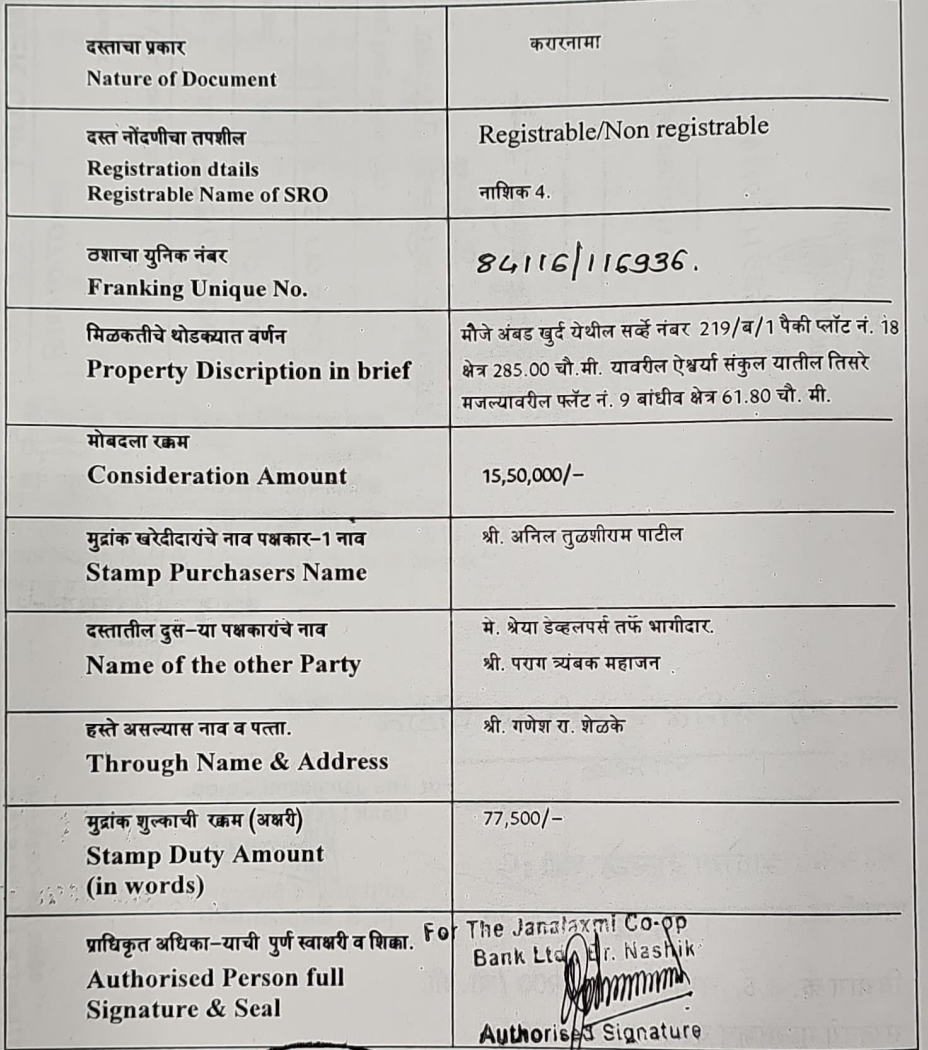 दस्ताचा प्रकार
Nature of Document
करारनामा
दस्त नोंदणीचा तपशील
Registration dtails
Registrable Name of SRO
Registrable/Non registrable
नाशिक 4.
ठशाचा युनिक नंबर
Franking Unique No.
84116/116936.
मिळकतीचे थोडक्यात वर्णन
Property Discription in brief
मौजे अंबड खुर्द येथील सर्व्हे नंबर 219/ब/1 पैकी प्लॉट नं. 18
क्षेत्र 285.00 चौ.मी. यावरील ऐश्वर्या संकुल यातील तिसरे
मजल्यावरील फ्लॅट नं. 9 बांधीव क्षेत्र 61.80 चौ. मी.
मोबदला रक्कम
Consideration Amount
15,50,000/-
मुद्रांक खरेदीदारांचे नाव पक्षकार-1 नाव
Stamp Purchasers Name
श्री. अनिल तुळशीराम पाटील
दस्तातील दुस-या पक्षकारांचे नाव
Name of the other Party
मे. श्रेया डेव्हलपर्स तर्फे भागीदार.
श्री. पराग त्र्यंबक महाजन
हस्ते असल्यास नाव व पत्ता.
Through Name & Address
श्री. गणेश रा. शेळके
मुद्रांक शुल्काची रक्कम (अक्षरी)
Stamp Duty Amount
(in words)
77,500/-
प्राधिकृत अधिका-याची पुर्ण स्वाक्षरी व शिक्का.
Authorised Person full
Signature & Seal
For The Janalaxmi Co-op
Bank Ltd Br. Nashik
Authorised Signature